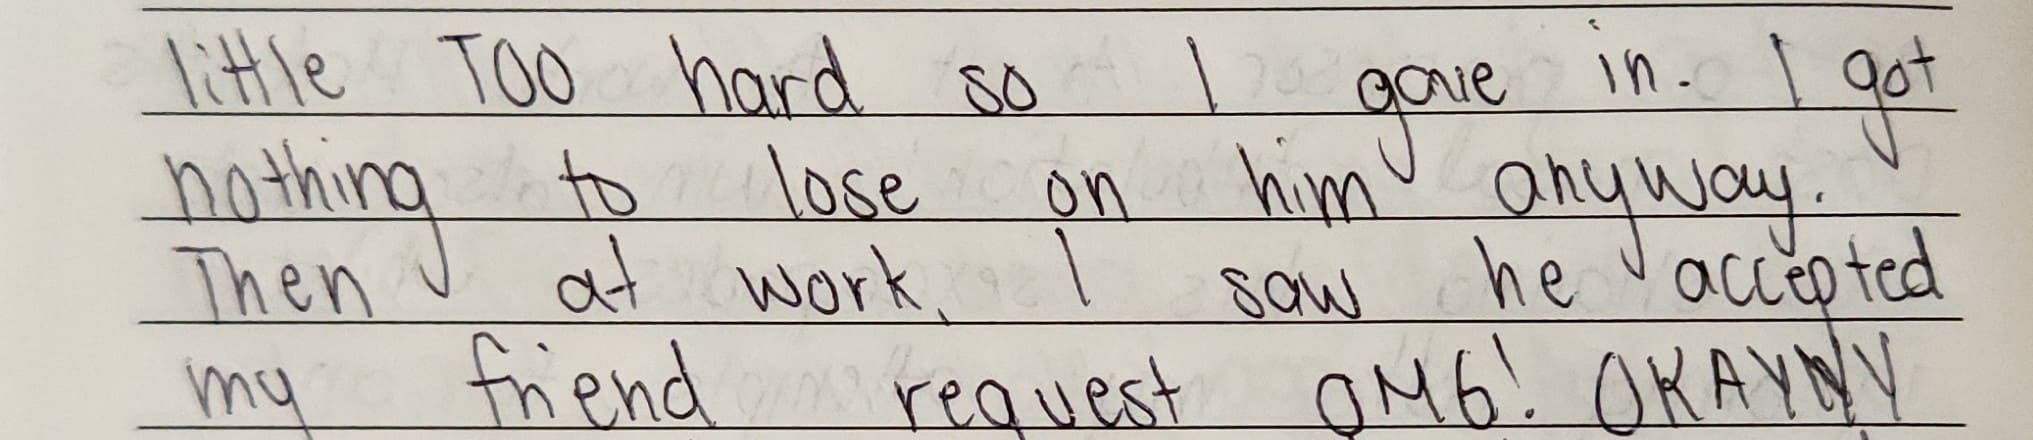 little TOO hard so I gave in. I got
nothing to lose on him anyway.
Then at work, I saw he accepted
my friend request OMG! OKAYYYY